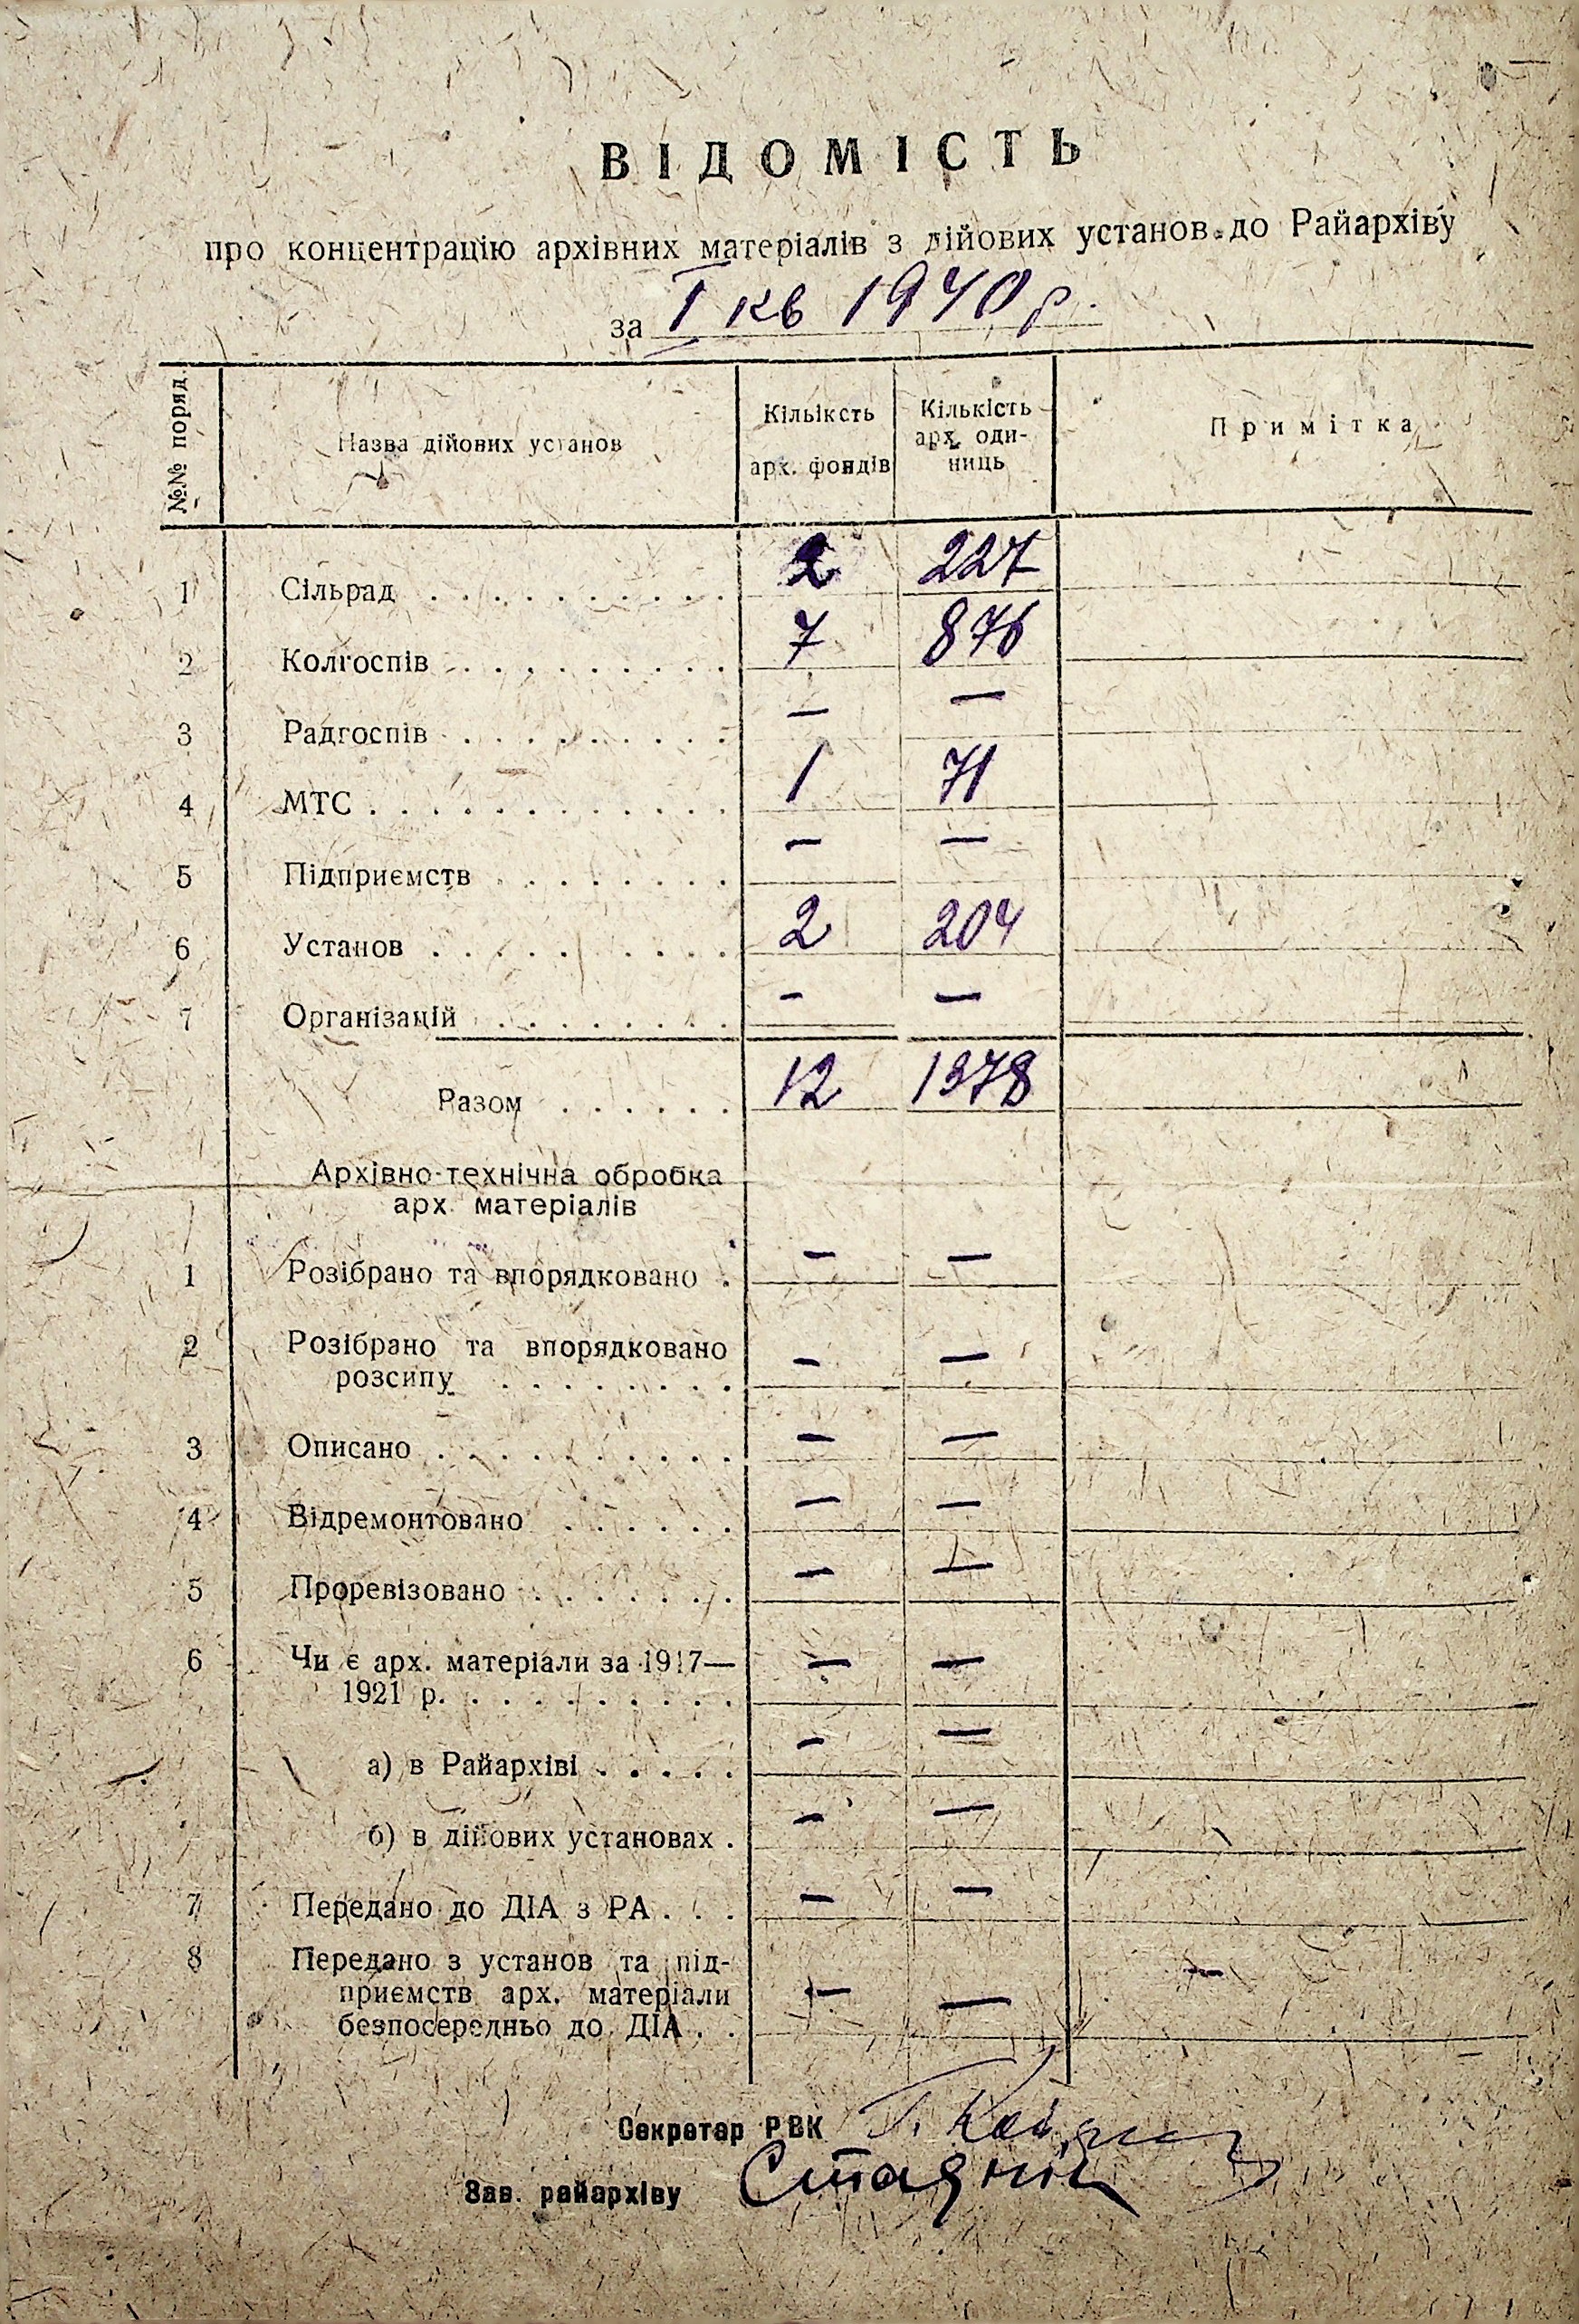 ВІДОМІСТЬ
про концентрацію архівних матеріалів з дійових установ до Райархіву
за І кв 1940 р.
№№ поряд. Назва дійових установ Кільікcть арх. фондів Кількість арх. оди-ниць Примітка
1 Сільрад . . . . . . . . . . 2 227
2 Колгоспів . . . . . . . . . 7 876
3 Радгоспів . . . . . . . . . — —
4 МТС . . . . . . . . . . . . 1 71
5 Підприємств . . . . . . . . — —
6 Установ . . . . . . . . . . 2 204
7 Організацій . . . . . . . . — —
Разом . . . . . . 12 1378
Архівно-технічна обробка
арх. матеріалів
1 Розібрано та впорядковано . — —
2 Розібрано та впорядковано
розсипу . . . . . . . . — —
3 Описано . . . . . . . . . . — —
4 Відремонтовано . . . . . . — —
5 Проревізовано . . . . . . . — —
6 Чи є арх. матеріали за 1917—
1921 р. . . . . . . . . . — —
а) в Райархіві . . . . . — —
б) в дійових установах . — —
7 Передано до ДІА з РА . . . — —
8 Передано з установ та під-
приємств арх. матеріали
безпосередньо до ДІА . . — — —
Секретар РВК
Зав. райархіву Стадник